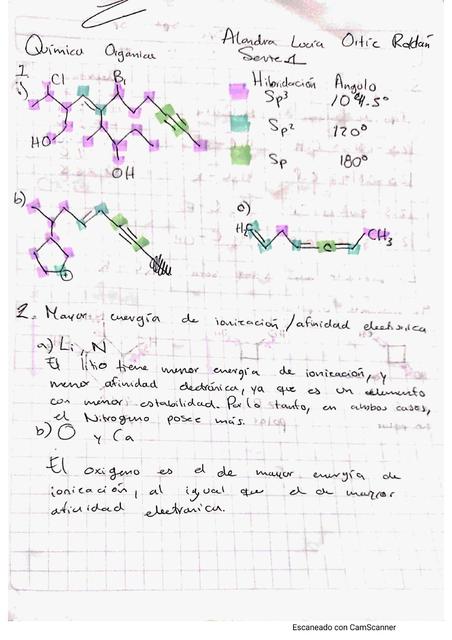 Química Orgánica
Alondra Lucía Ortiz Roldán
Serie 1
1.
a)
Cl
Br
HO
OH
Hibridación Angulo
Sp³ 109.5°
Sp² 120°
Sp 180°
b)
+
c)
H₂C
C
CH₃
2. Mayor energía de ionización / afinidad electrónica
a) Li, N
El litio tiene menor energía de ionización, y
menor afinidad electrónica, ya que es un elemento
con menor estabilidad. Por lo tanto, en ambos casos,
el Nitrogeno posee más.
b) O y Ca
El oxigeno es el de mayor energía de
ionicación, al igual que el de mayor
afinidad electronica.
Escaneado con CamScanner